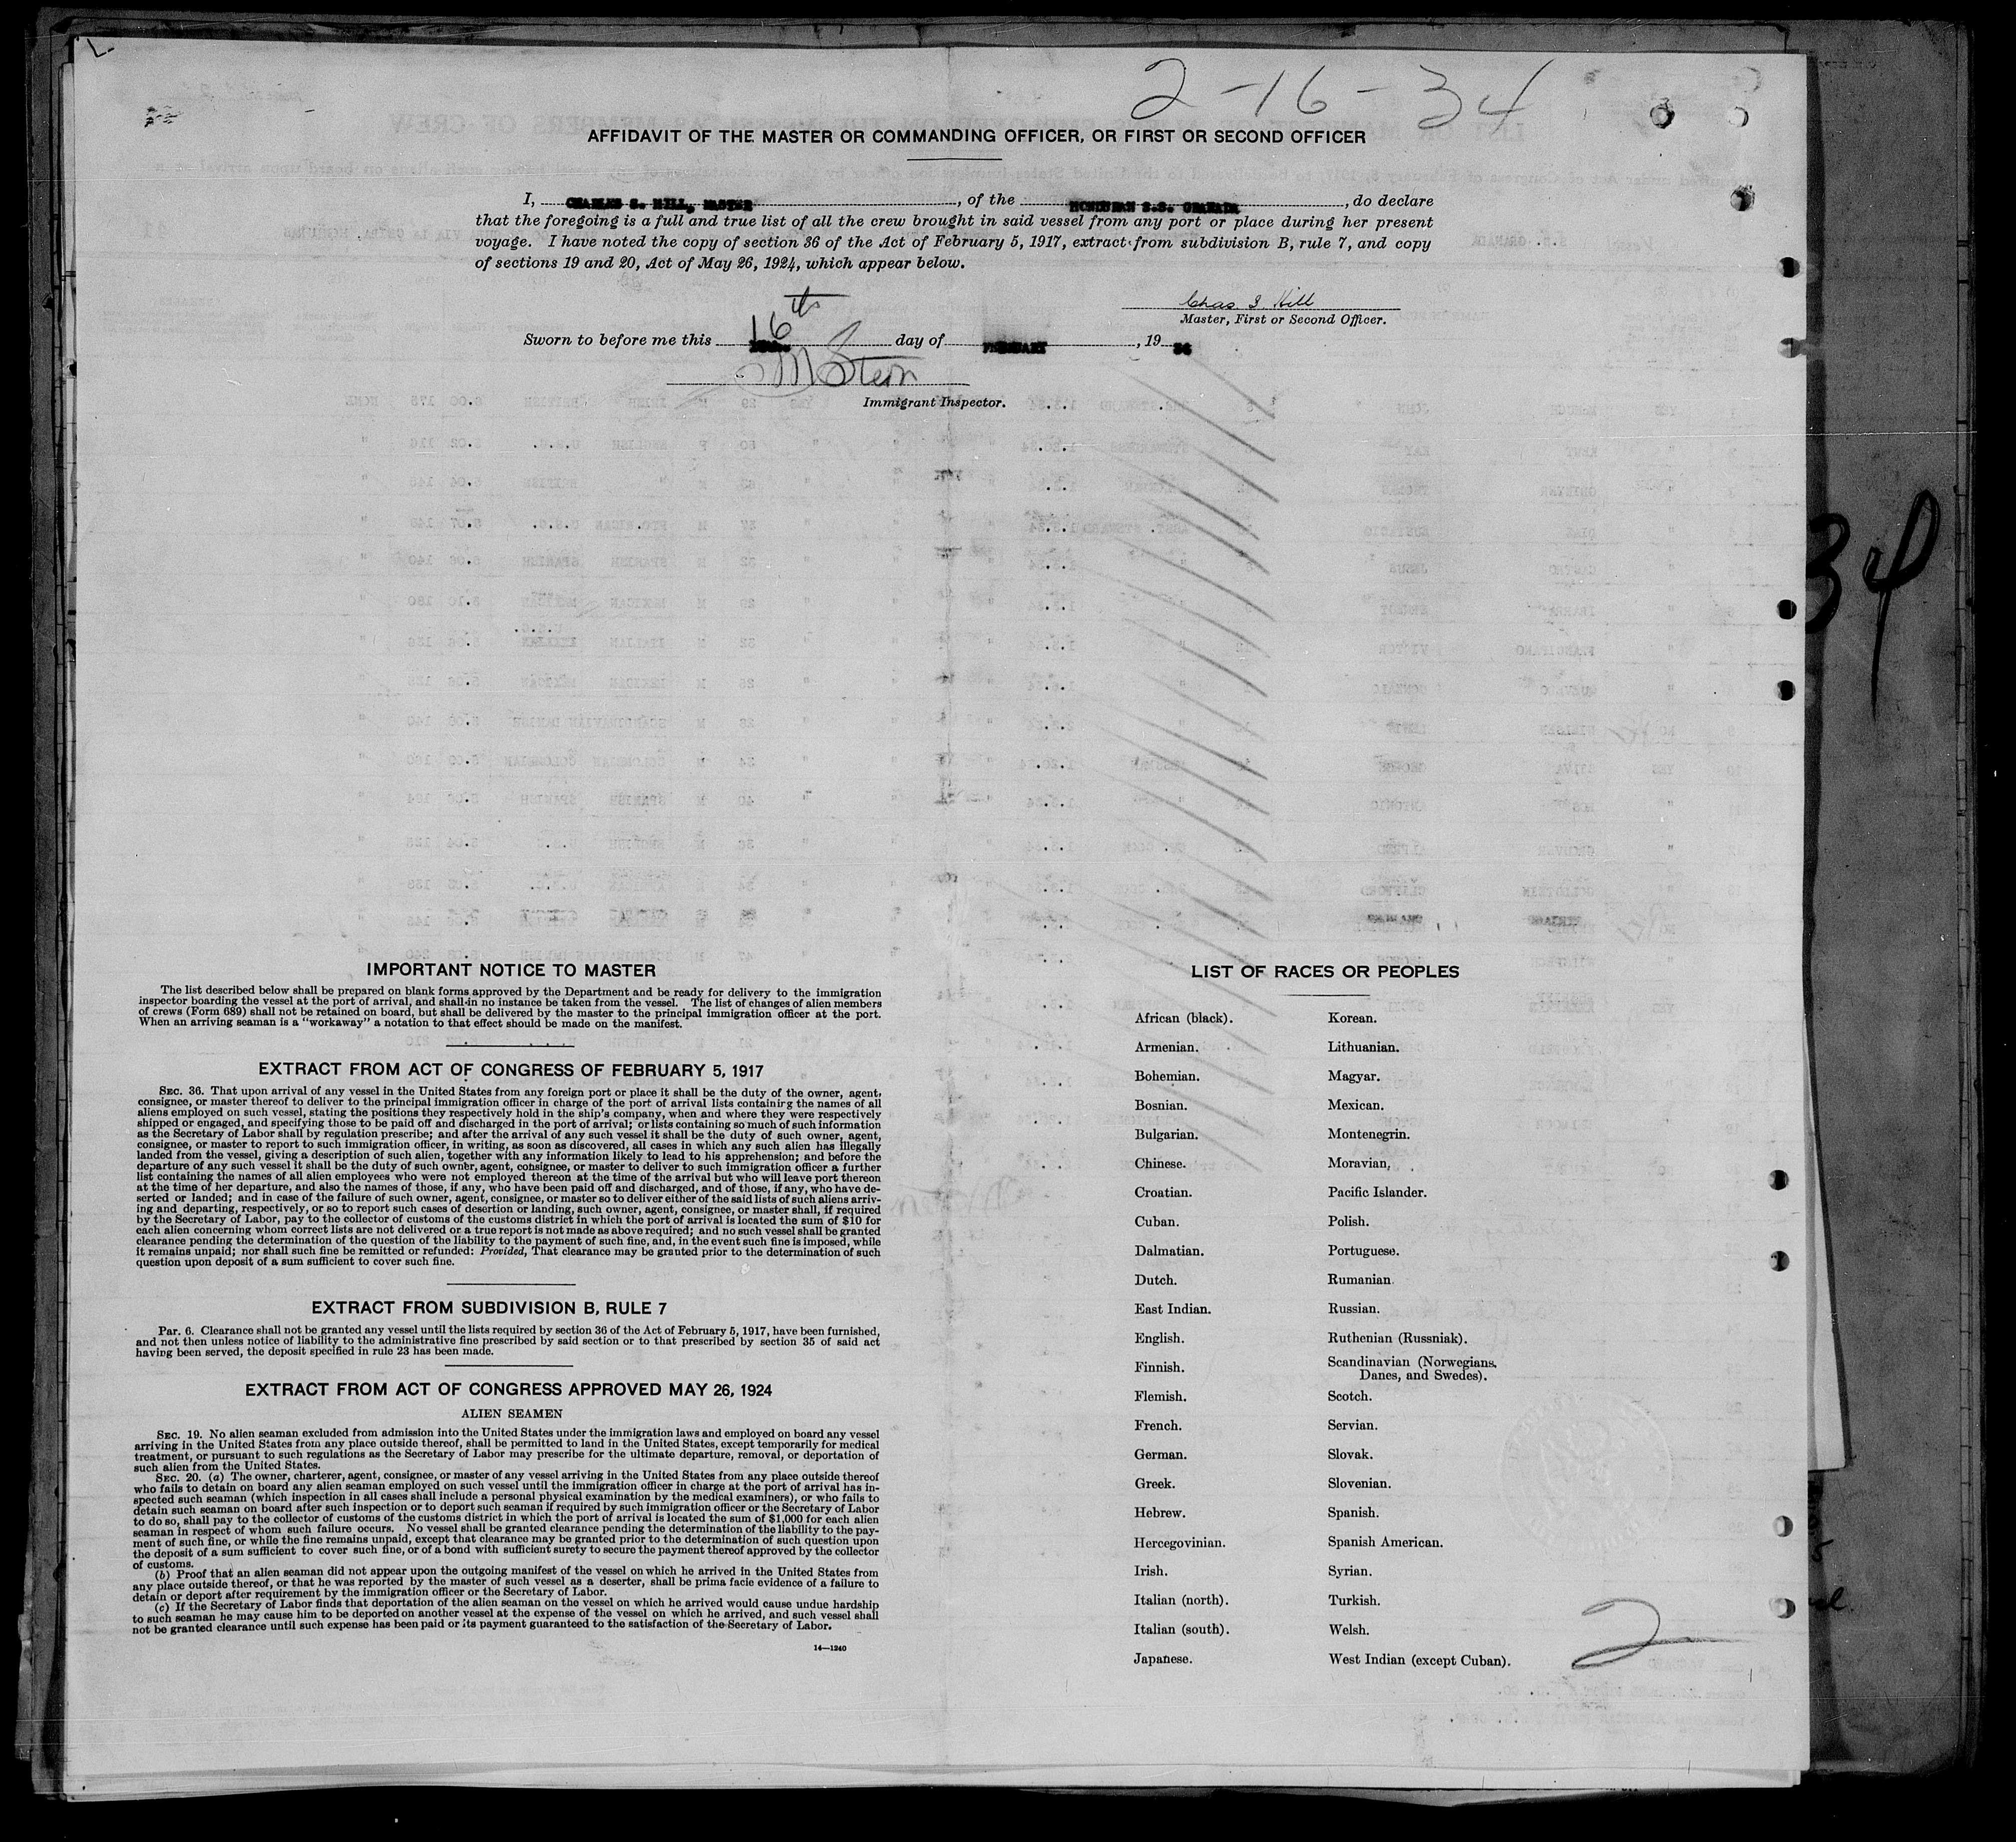 2-16-34
AFFIDAVIT OF THE MASTER OR COMMANDING OFFICER, OR FIRST OR SECOND OFFICER
I, CHARLES S. HILL, MASTER, of the HONDURAN S.S. GRANADA, do declare
that the foregoing is a full and true list of all the crew brought in said vessel from any port or place during her present
voyage. I have noted the copy of section 36 of the Act of February 5, 1917, extract from subdivision B, rule 7, and copy
of sections 19 and 20, Act of May 26, 1924, which appear below.
Chas S. Hill
Master, First or Second Officer.
Sworn to before me this 16th day of FEBRUARY, 19 34
Stern
Immigrant Inspector.
34
IMPORTANT NOTICE TO MASTER
The list described below shall be prepared on blank forms approved by the Department and be ready for delivery to the immigration
inspector boarding the vessel at the port of arrival, and shall in no instance be taken from the vessel. The list of changes of alien members
of crews (Form 689) shall not be retained on board, but shall be delivered by the master to the principal immigration officer at the port.
When an arriving seaman is a "workaway" a notation to that effect should be made on the manifest.
EXTRACT FROM ACT OF CONGRESS OF FEBRUARY 5, 1917
SEC. 36. That upon arrival of any vessel in the United States from any foreign port or place it shall be the duty of the owner, agent,
consignee, or master thereof to deliver to the principal immigration officer in charge of the port of arrival lists containing the names of all
aliens employed on such vessel, stating the positions they respectively hold in the ship's company, when and where they were respectively
shipped or engaged, and specifying those to be paid off and discharged in the port of arrival; or lists containing so much of such information
as the Secretary of Labor shall by regulation prescribe; and after the arrival of any such vessel it shall be the duty of such owner, agent,
consignee, or master to report to such immigration officer, in writing, as soon as discovered, all cases in which any such alien has illegally
landed from the vessel, giving a description of such alien, together with any information likely to lead to his apprehension; and before the
departure of any such vessel it shall be the duty of such owner, agent, consignee, or master to deliver to such immigration officer a further
list containing the names of all alien employees who were not employed thereon at the time of the arrival but who will leave port thereon
at the time of her departure, and also the names of those, if any, who have been paid off and discharged, and of those, if any, who have de-
serted or landed; and in case of the failure of such owner, agent, consignee, or master so to deliver either of the said lists of such aliens arriv-
ing and departing, respectively, or so to report such cases of desertion or landing, such owner, agent, consignee, or master shall, if required
by the Secretary of Labor, pay to the collector of customs of the customs district in which the port of arrival is located the sum of $10 for
each alien concerning whom correct lists are not delivered or a true report is not made as above required; and no such vessel shall be granted
clearance pending the determination of the question of the liability to the payment of such fine, and, in the event such fine is imposed, while
it remains unpaid; nor shall such fine be remitted or refunded: Provided, That clearance may be granted prior to the determination of such
question upon deposit of a sum sufficient to cover such fine.
EXTRACT FROM SUBDIVISION B, RULE 7
Par. 6. Clearance shall not be granted any vessel until the lists required by section 36 of the Act of February 5, 1917, have been furnished,
and not then unless notice of liability to the administrative fine prescribed by said section or to that prescribed by section 35 of said act
having been served, the deposit specified in rule 23 has been made.
EXTRACT FROM ACT OF CONGRESS APPROVED MAY 26, 1924
ALIEN SEAMEN
SEC. 19. No alien seaman excluded from admission into the United States under the immigration laws and employed on board any vessel
arriving in the United States from any place outside thereof, shall be permitted to land in the United States, except temporarily for medical
treatment, or pursuant to such regulations as the Secretary of Labor may prescribe for the ultimate departure, removal, or deportation of
such alien from the United States.
SEC. 20. (a) The owner, charterer, agent, consignee, or master of any vessel arriving in the United States from any place outside thereof
who fails to detain on board any alien seaman employed on such vessel until the immigration officer in charge at the port of arrival has in-
spected such seaman (which inspection in all cases shall include a personal physical examination by the medical examiners), or who fails to
detain such seaman on board after such inspection or to deport such seaman if required by such immigration officer or the Secretary of Labor
to do so, shall pay to the collector of customs of the customs district in which the port of arrival is located the sum of $1,000 for each alien
seaman in respect of whom such failure occurs. No vessel shall be granted clearance pending the determination of the liability to the pay-
ment of such fine, or while the fine remains unpaid, except that clearance may be granted prior to the determination of such question upon
the deposit of a sum sufficient to cover such fine, or of a bond with sufficient surety to secure the payment thereof approved by the collector
of customs.
(b) Proof that an alien seaman did not appear upon the outgoing manifest of the vessel on which he arrived in the United States from
any place outside thereof, or that he was reported by the master of such vessel as a deserter, shall be prima facie evidence of a failure to
detain or deport after requirement by the immigration officer or the Secretary of Labor.
(c) If the Secretary of Labor finds that deportation of the alien seaman on the vessel on which he arrived would cause undue hardship
to such seaman he may cause him to be deported on another vessel at the expense of the vessel on which he arrived, and such vessel shall
not be granted clearance until such expense has been paid or its payment guaranteed to the satisfaction of the Secretary of Labor.
14—1240
LIST OF RACES OR PEOPLES
African (black). Korean.
Armenian. Lithuanian.
Bohemian. Magyar.
Bosnian. Mexican.
Bulgarian. Montenegrin.
Chinese. Moravian.
Croatian. Pacific Islander.
Cuban. Polish.
Dalmatian. Portuguese.
Dutch. Rumanian.
East Indian. Russian.
English. Ruthenian (Russniak).
Finnish. Scandinavian (Norwegians,
Danes, and Swedes).
Flemish. Scotch.
French. Servian.
German. Slovak.
Greek. Slovenian.
Hebrew. Spanish.
Hercegovinian. Spanish American.
Irish. Syrian.
Italian (north). Turkish.
Italian (south). Welsh.
Japanese. West Indian (except Cuban).
2